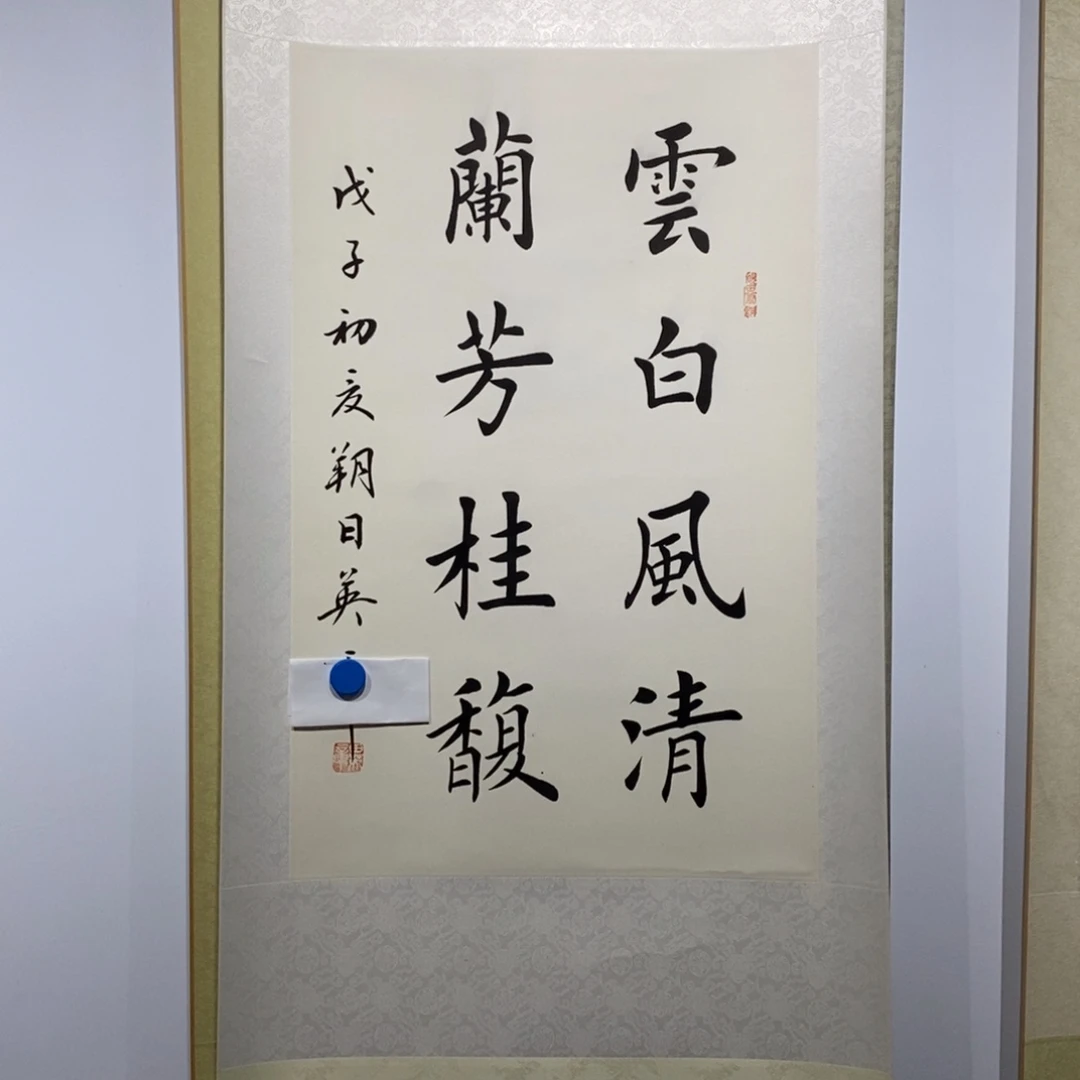 雲白風清
蘭芳桂馥
戊子初夏朔日英